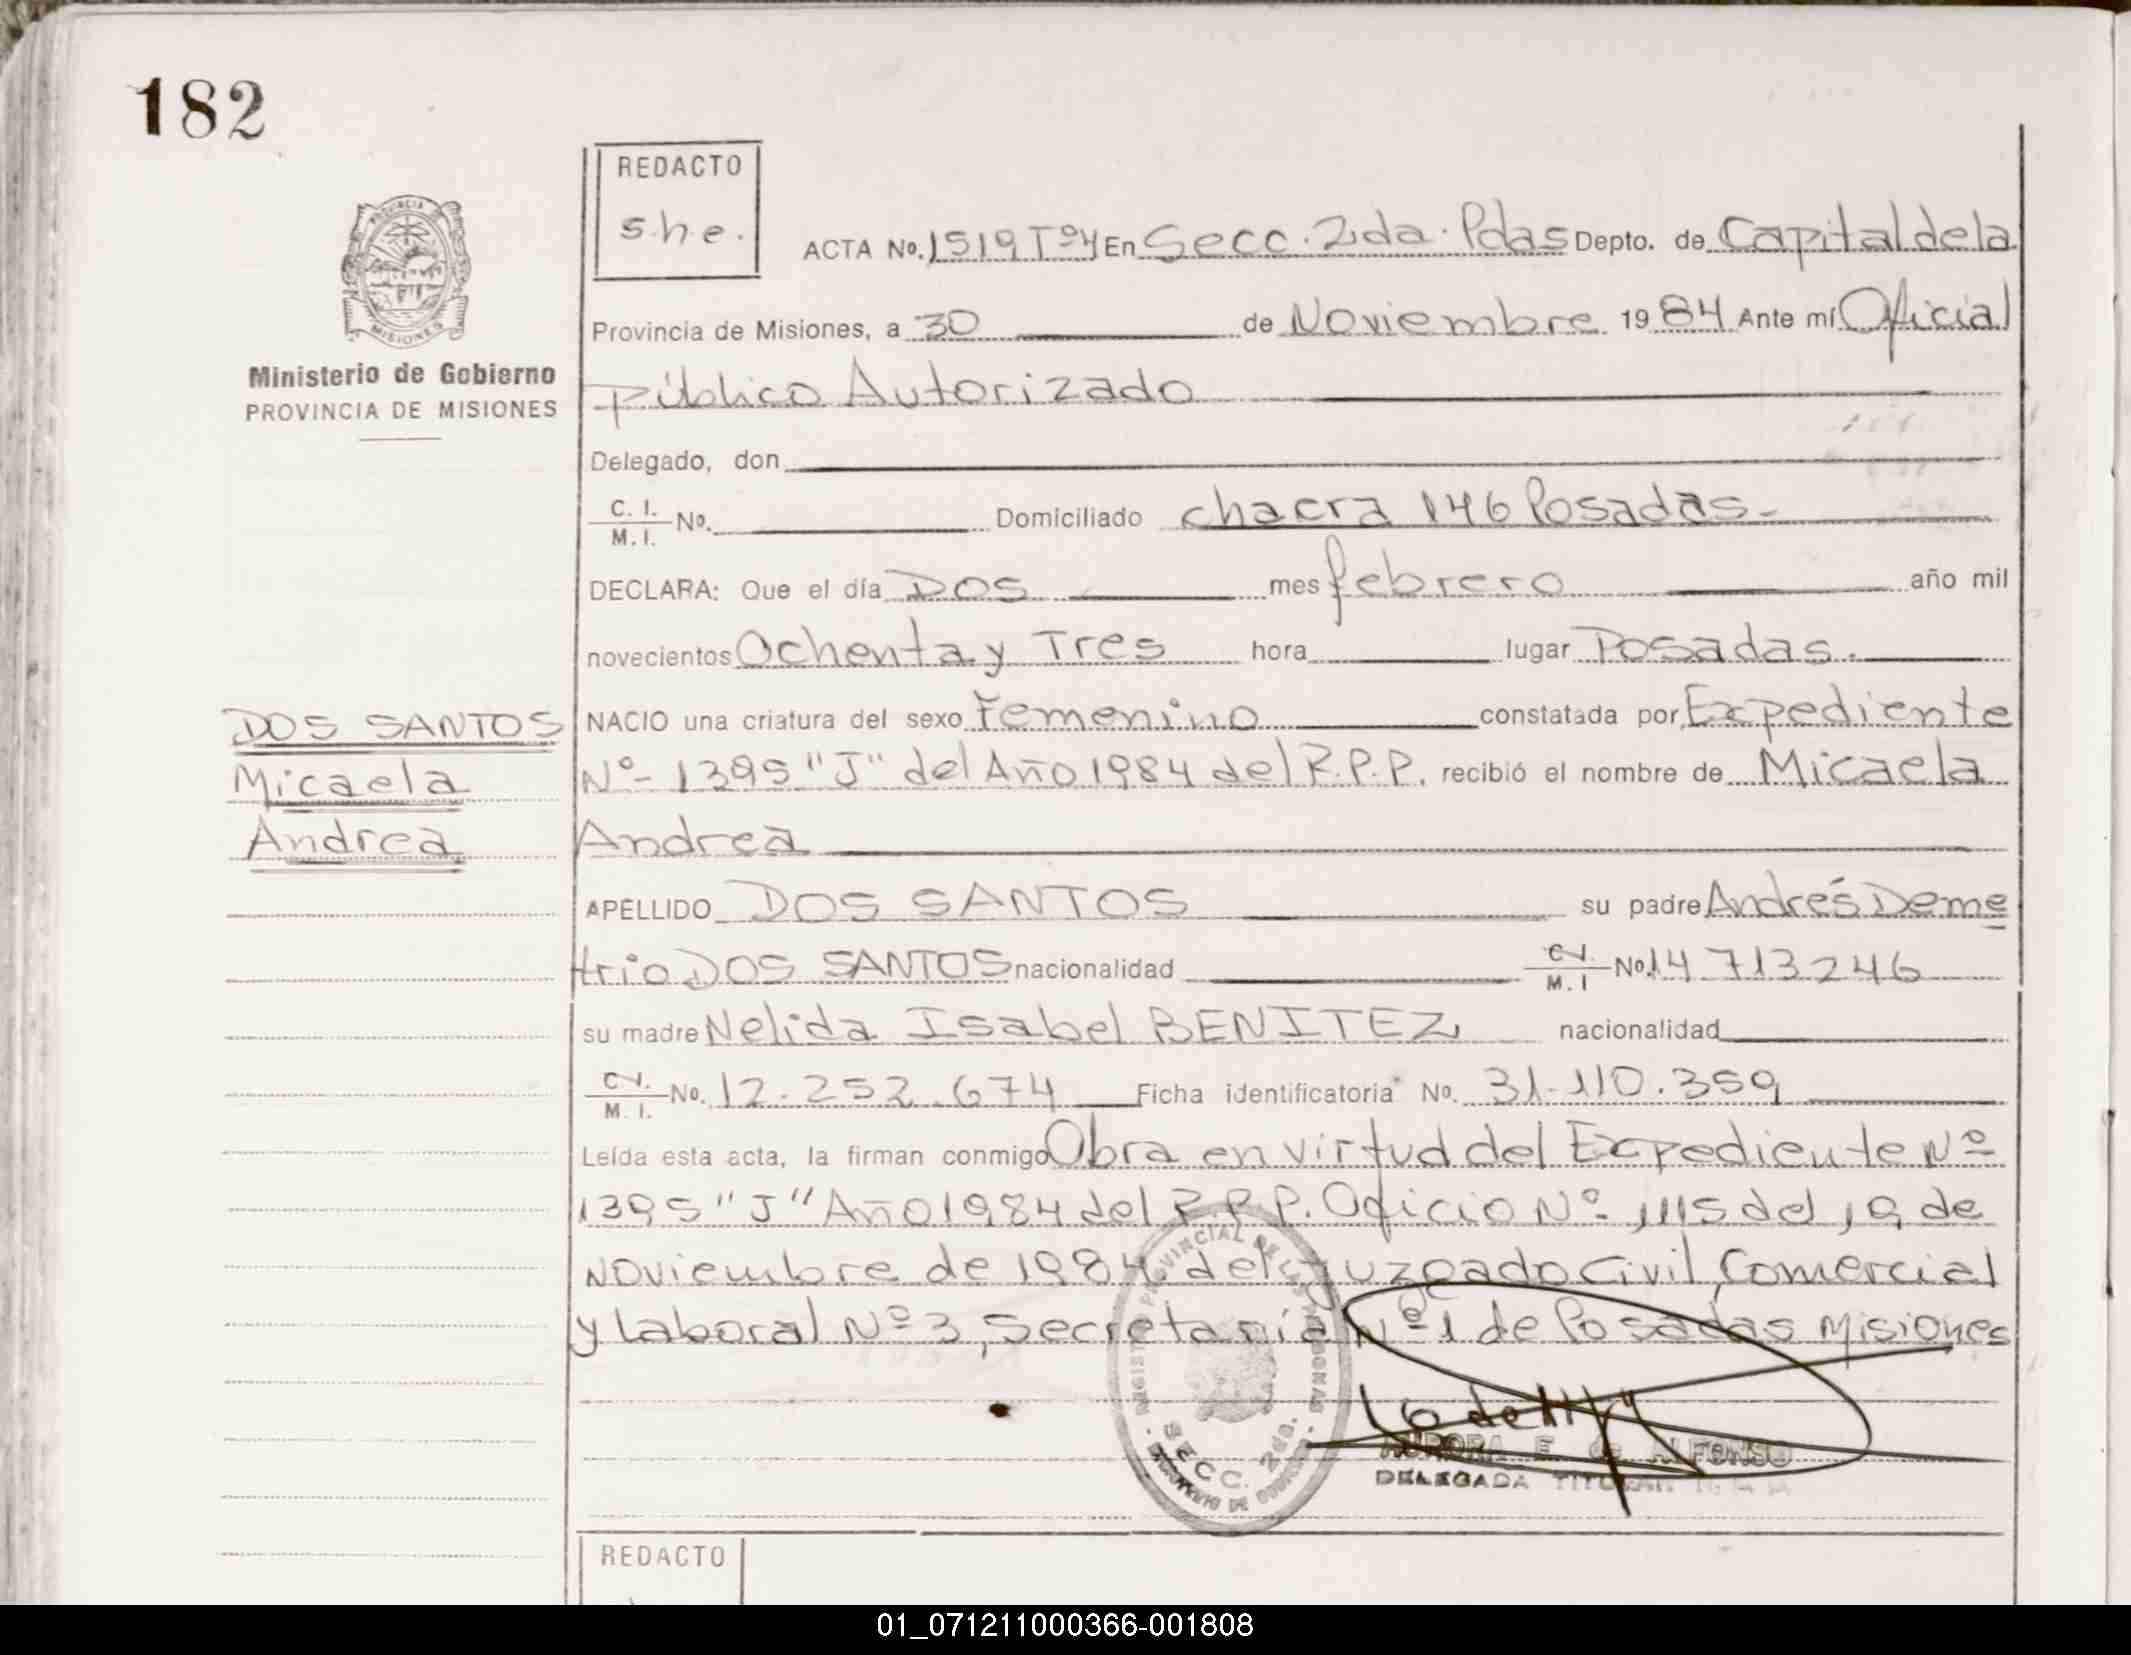 182
REDACTO
s.h.e.
ACTA No. 1519 Tº4 En Secc. 2da. Pdas Depto. de Capital de la
Provincia de Misiones, a 30 de Noviembre 1984 Ante mí Oficial
Público Autorizado
Ministerio de Gobierno
PROVINCIA DE MISIONES
Delegado, don
C. I.
M. I. No. Domiciliado chacra 146 Posadas.-
DECLARA: Que el día DOS mes febrero año mil
novecientos Ochenta y Tres hora lugar Posadas.
DOS SANTOS
Micaela
Andrea
NACIO una criatura del sexo femenino constatada por Expediente
Nº- 1395 "J" del Año 1984 del R.P.P. recibió el nombre de Micaela
Andrea
APELLIDO DOS SANTOS su padre Andrés Deme
trio DOS SANTOS nacionalidad C. I.
M. I No. 14 713246
su madre Nelida Isabel BENITEZ nacionalidad
C. I.
M. I. No. 12.252.674 Ficha identificatoria No. 31-110.359
Leída esta acta, la firman conmigo Obra en virtud del Expediente Nº
1395 "J" Año 1984 del R.P.P. Oficio Nº 1115 del 19 de
Noviembre de 1984 del Juzgado Civil, Comercial
y laboral Nº 3, Secretaría Nº 1 de Posadas Misiones
SECC. 2da.
AURORA E. de ALFONSO
DELEGADA TITULAR
REDACTO
01_071211000366-001808